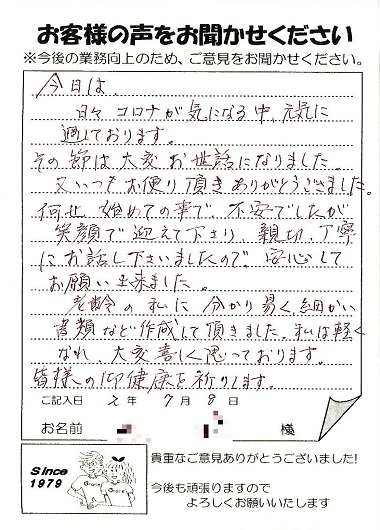 お客様の声をお聞かせください
※今後の業務向上のため、ご意見をお聞かせください。
今日は、
日々コロナが気になる中、元気に
過しております。
その節は大変お世話になりました。
又いつもお便り頂きありがとうございました。
何せ始めての事で、不安でしたが
笑顔で迎えて下さり、親切、丁寧
にお話し下さいましたので、安心して
お願い出来ました。
老齢の私に分かり易く、細かい
書類など作成して頂きました。私は軽く
なれ、大変喜しく思っております。
皆様の御健康を祈りします。
ご記入日 2年 7月 8日
お名前 様
Since
1979
Grace
Grace
貴重なご意見ありがとうございました!
今後も頑張りますので
よろしくお願いいたします